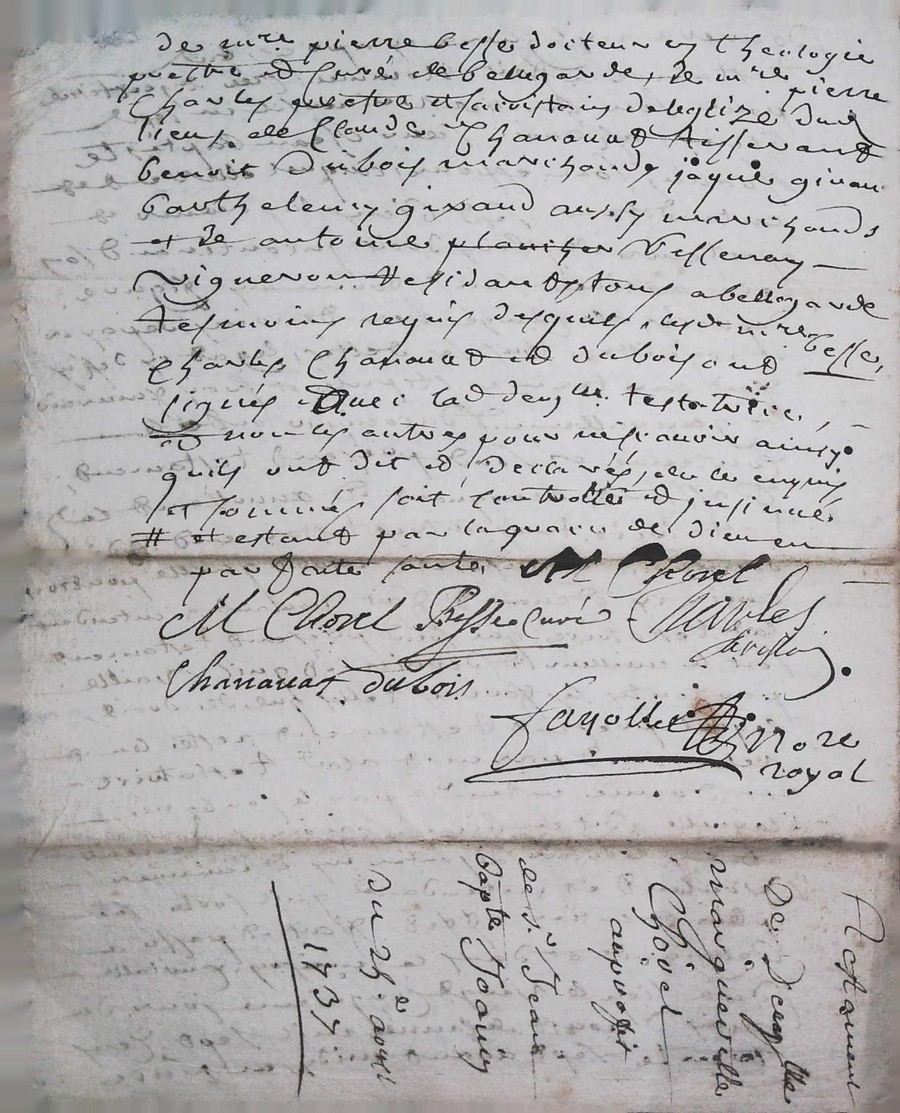 de mre pierre besse docteur en theologie
prestre et curé de bellegarde, de mre pierre
Charles prestre et sacristain de leglize dud
lieu, de Claude Chanauat tisserand
benoit dubois marchand, jaque giraud
barthelemy giraud aussy marchands
et de antoine plancher vissenay
vigneron residants tous a bellegarde
tesmoins requis desquels, lesd mre besse,
Charles, Chanauat et dubois ont
signés auec lad denlle testatrice,
et non les autres pour ne scauoir ainsy
quils ont dit et declarés, de ce enquis
et sommés soit controllé et jnsinué
# et estant par la grace de dieu en
parfaite santé M Chorel
M Chorel Besse curé Charles
sacristain
Chanauat dubois
fayolle nore
royal
Testament
De Demlle
margueritte
Chorel
au proffit
de sr Jean
bapte Joanny
du 25e avril
1737